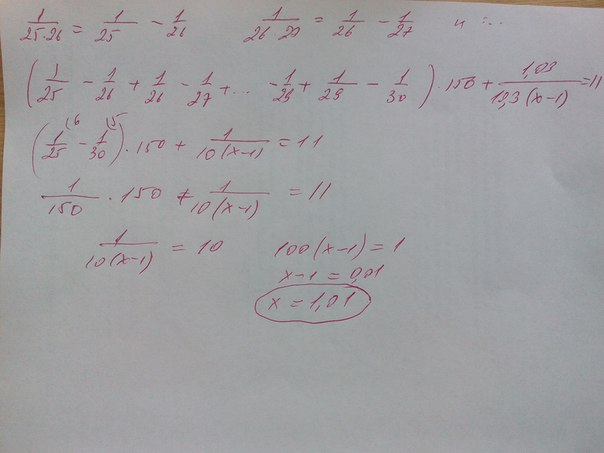 1/(25·26) = 1/25 - 1/26 1/(26·29) = 1/26 - 1/27 и ...
(1/25 - 1/26 + 1/26 - 1/27 + ... - 1/29 + 1/29 - 1/30) · 150 + 1,03/(10,3(x-1)) = 11
(1/25 - 1/30) · 150 + 1/(10(x-1)) = 11
1/150 · 150 + 1/(10(x-1)) = 11
1/(10(x-1)) = 10 100(x-1) = 1
x-1 = 0,01
x = 1,01